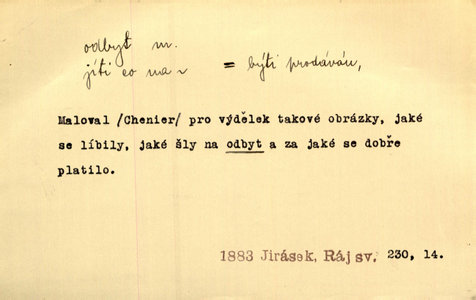 odbyt m.
jíti co na ~ = býti prodáván,
Maloval /Chenier/ pro výdělek takové obrázky, jaké
se líbily, jaké šly na odbyt a za jaké se dobře
platilo.
1883 Jirásek, Ráj sv. 230, 14.